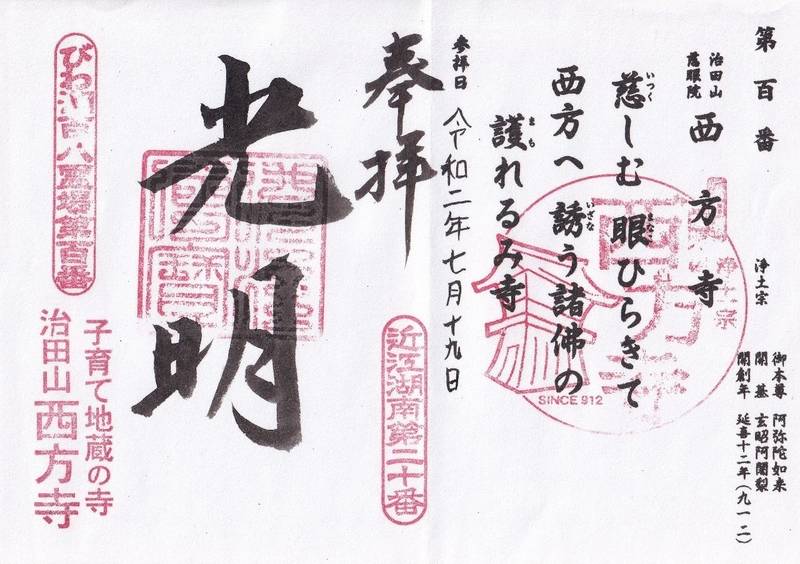 第百番
治田山
慈眼院
西方寺
浄土宗
御本尊 阿弥陀如来
開基 玄昭阿闍梨
開創年 延喜十二年(九一二)
慈しむ眼ひらきて
いつく
まなこ
西方へ誘う諸佛の
いざな
護れるみ寺
まも
西方寺
浄土宗
SINCE 912
参拝日 令和二年七月十九日
奉拝
近江湖南第二十番
光明
佛法僧寶
びわ湖百八霊場第百番
子育て地蔵の寺
治田山 西方寺